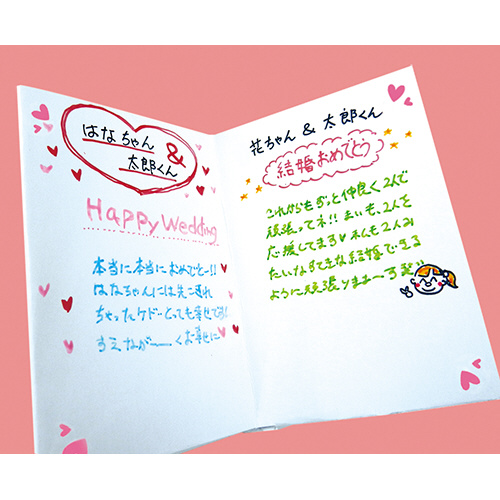 はなちゃん
&
太郎くん
Happy Wedding
本当に本当におめでとー!!
はなちゃんには先こ越れ
ちゃったケドとっても幸せです!
すえながーーくお幸せに
花ちゃん & 太郎くん
結婚おめでとう
これからもずっと仲良く2人で
頑張ってネ!!まいも、2人を
応援してます♥私も2人み
たいなすてきな結婚できる
ように頑張りまぁーす